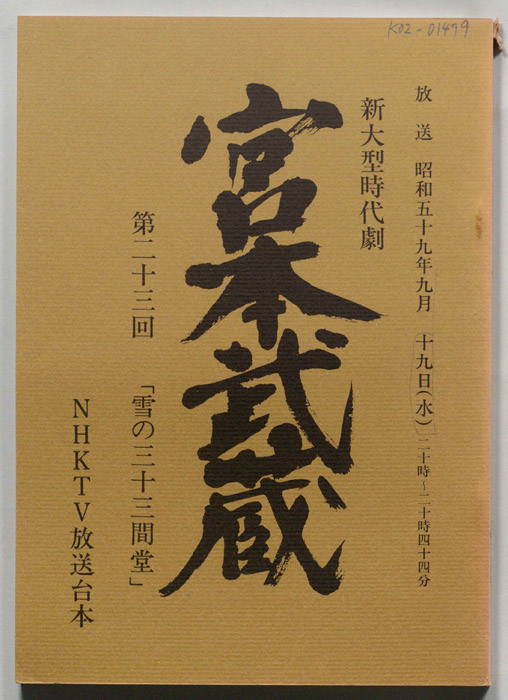 K02-01479
放送 昭和五十九年九月 十九日(水) 二十時~二十時四十四分
新大型時代劇
宮本武蔵
第二十三回 「雪の三十三間堂」
NHKTV放送台本